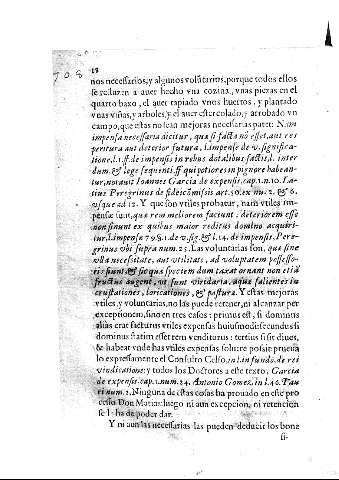 708
18
nos necessarios, y algunos voluntarios, porque todos ellos
se reduzen a auer hecho vna cozina, vnas piezas en el
quarto baxo, el auer tapiado vnos huertos, y plantado
vnas viñas, y arboles, y el auer estercolado, y arrobado vn
campo, que estas no sean mejoras necessarias patet: Nam
impensa necessaria dicitur, quæ si facta nō esset, aut res
peritura aut deterior futura, l. impensæ de v. significa-
tione, l. 1. ff. de impensis in rebus dotalibus factis, l. inter
dum, & lege sequenti, ff qui potiores in pignore habean-
tur, notauit Ioannes Garcia de expensis, cap. 1. n. 10. La-
tius Peregrinus de fideicōmisis art. 50. ex nu. 2. & 6.
vsque ad 12. Y que son vtiles probatur, nam vtiles im-
pensæ sunt, quæ rem meliorem faciunt: deteriorem esse
non sinunt ex quibus maior reditus domino acquiri-
tur, l. impensæ 79 §. 1. de v. sig. & l. 14. de impensis, Pere-
grinus vbi supra num. 25. Las voluntarias son, quæ sine
vlla necessitate, aut vtilitate, ad voluptatem possesso-
ris fiunt, & sic quæ speciem dum taxat ornant non etiā
fructus augent, vt sunt viridaria, aquæ salientes in
crustationes, loricationes, & pictura. Y estas mejoras
vtiles, y voluntarias, no las puede retener, ni alcanzar por
excepcion, sino en tres casos: primus est, si dominus
alias erat facturus vtiles expensas huiusmodi: secundus si
dominus statim esset rem venditurus: tertius si sit diues,
& habeat vnde has vtiles expensas soluere possit: prueua
lo expressamente el Consulto Celso, in l. in fundo, de rei
vindicatione; y todos los Doctores a este texto, Garcia
de expensis, cap. 1. num. 34. Antonio Gomez, in l. 40. Tau
ri num. 2. Ninguna de estas cosas ha prouado en este pro
cesso Don Matias: luego ni aun excepcion, ni retencion
se le ha de poder dar.
Y ni aun las necessarias las puede deducir los bone
fi-